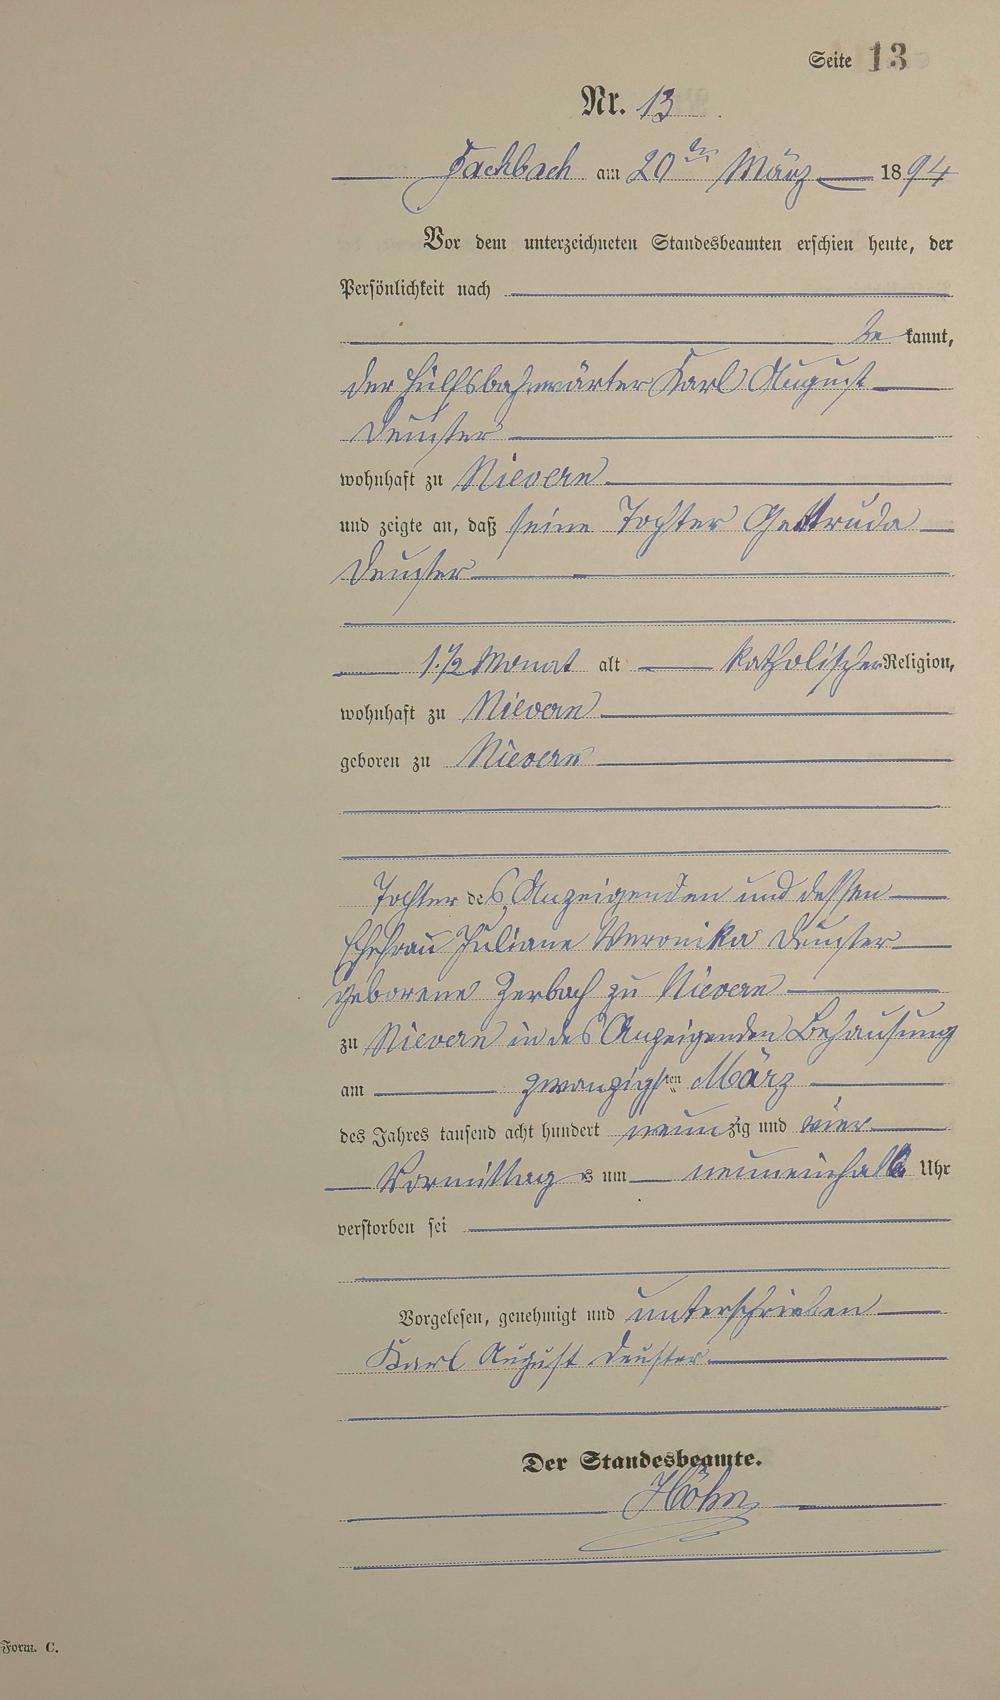 Seite 13
Nr. 13
Fachbach am 20ten März 1894
Vor dem unterzeichneten Standesbeamten erschien heute, der
Persönlichkeit nach
be kannt,
der Hülfsbahnwärter Karl August
Deuster
wohnhaft zu Nievern
und zeigte an, daß seine Tochter Gertruda
Deuster
1 1/2 Monat alt katholischer Religion,
wohnhaft zu Nievern
geboren zu Nievern
Tochter des Anzeigenden und dessen
Ehefrau Juliane Veronika Deuster
geborene Zerbach zu Nievern
zu Nievern in des Anzeigenden Behausung
am zwanzigsten März
des Jahres tausend acht hundert neunzig und vier
Vormittags um neuneinhalb Uhr
verstorben sei
Vorgelesen, genehmigt und unterschrieben
Karl August Deuster
Der Standesbeamte.
Höhn
Form. C.